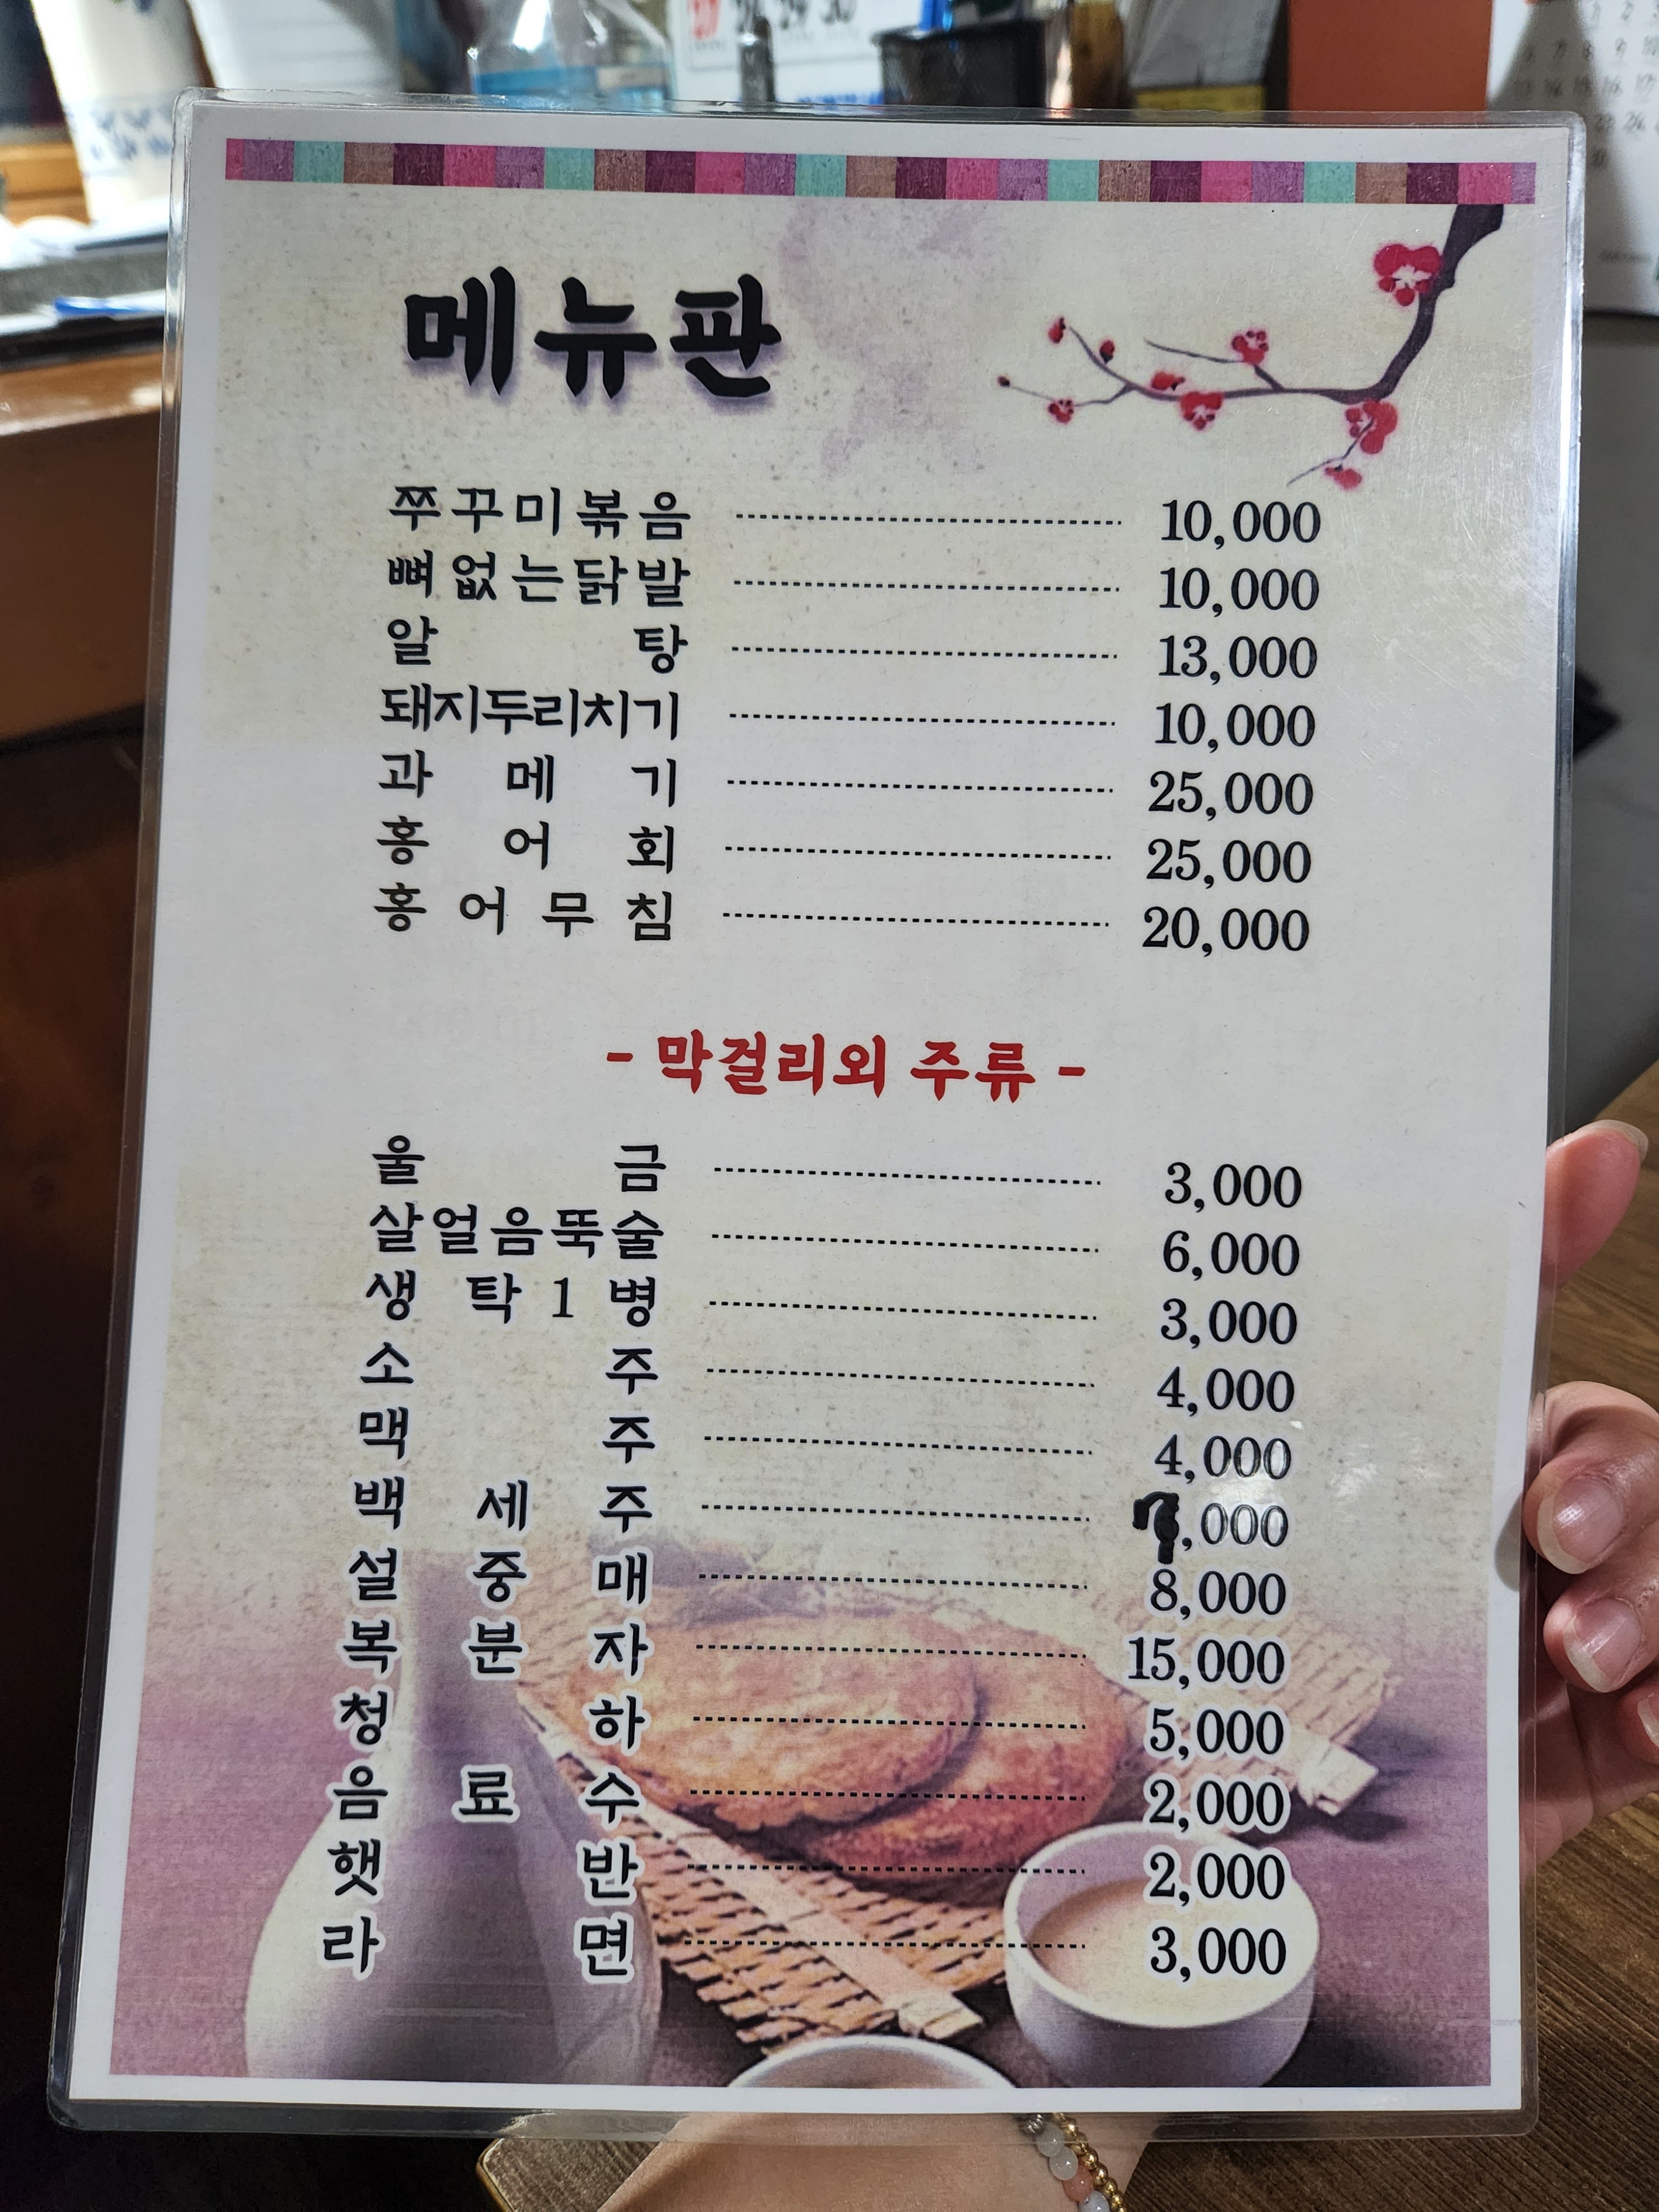 메뉴판
쭈꾸미볶음 10,000
뼈없는닭발 10,000
알탕 13,000
돼지두리치기 10,000
과메기 25,000
홍어회 25,000
홍어무침 20,000
- 막걸리외 주류 -
울금 3,000
살얼음뚝술 6,000
생탁1병 3,000
소주 4,000
맥주 4,000
백세주 7,000
설중매 8,000
복분자 15,000
청하 5,000
음료수 2,000
햇반 2,000
라면 3,000